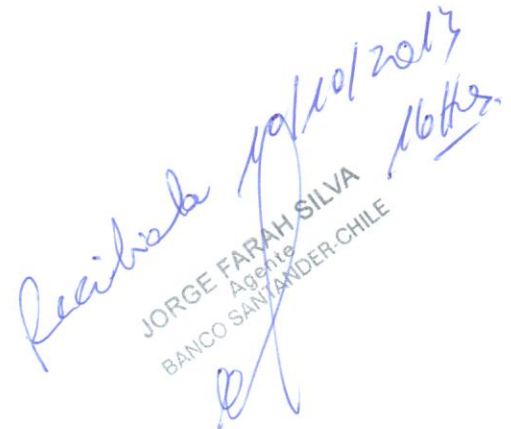 Recibida 10/10/2013
16 Hrs.
JORGE FARAH SILVA
Agente
BANCO SANTANDER-CHILE